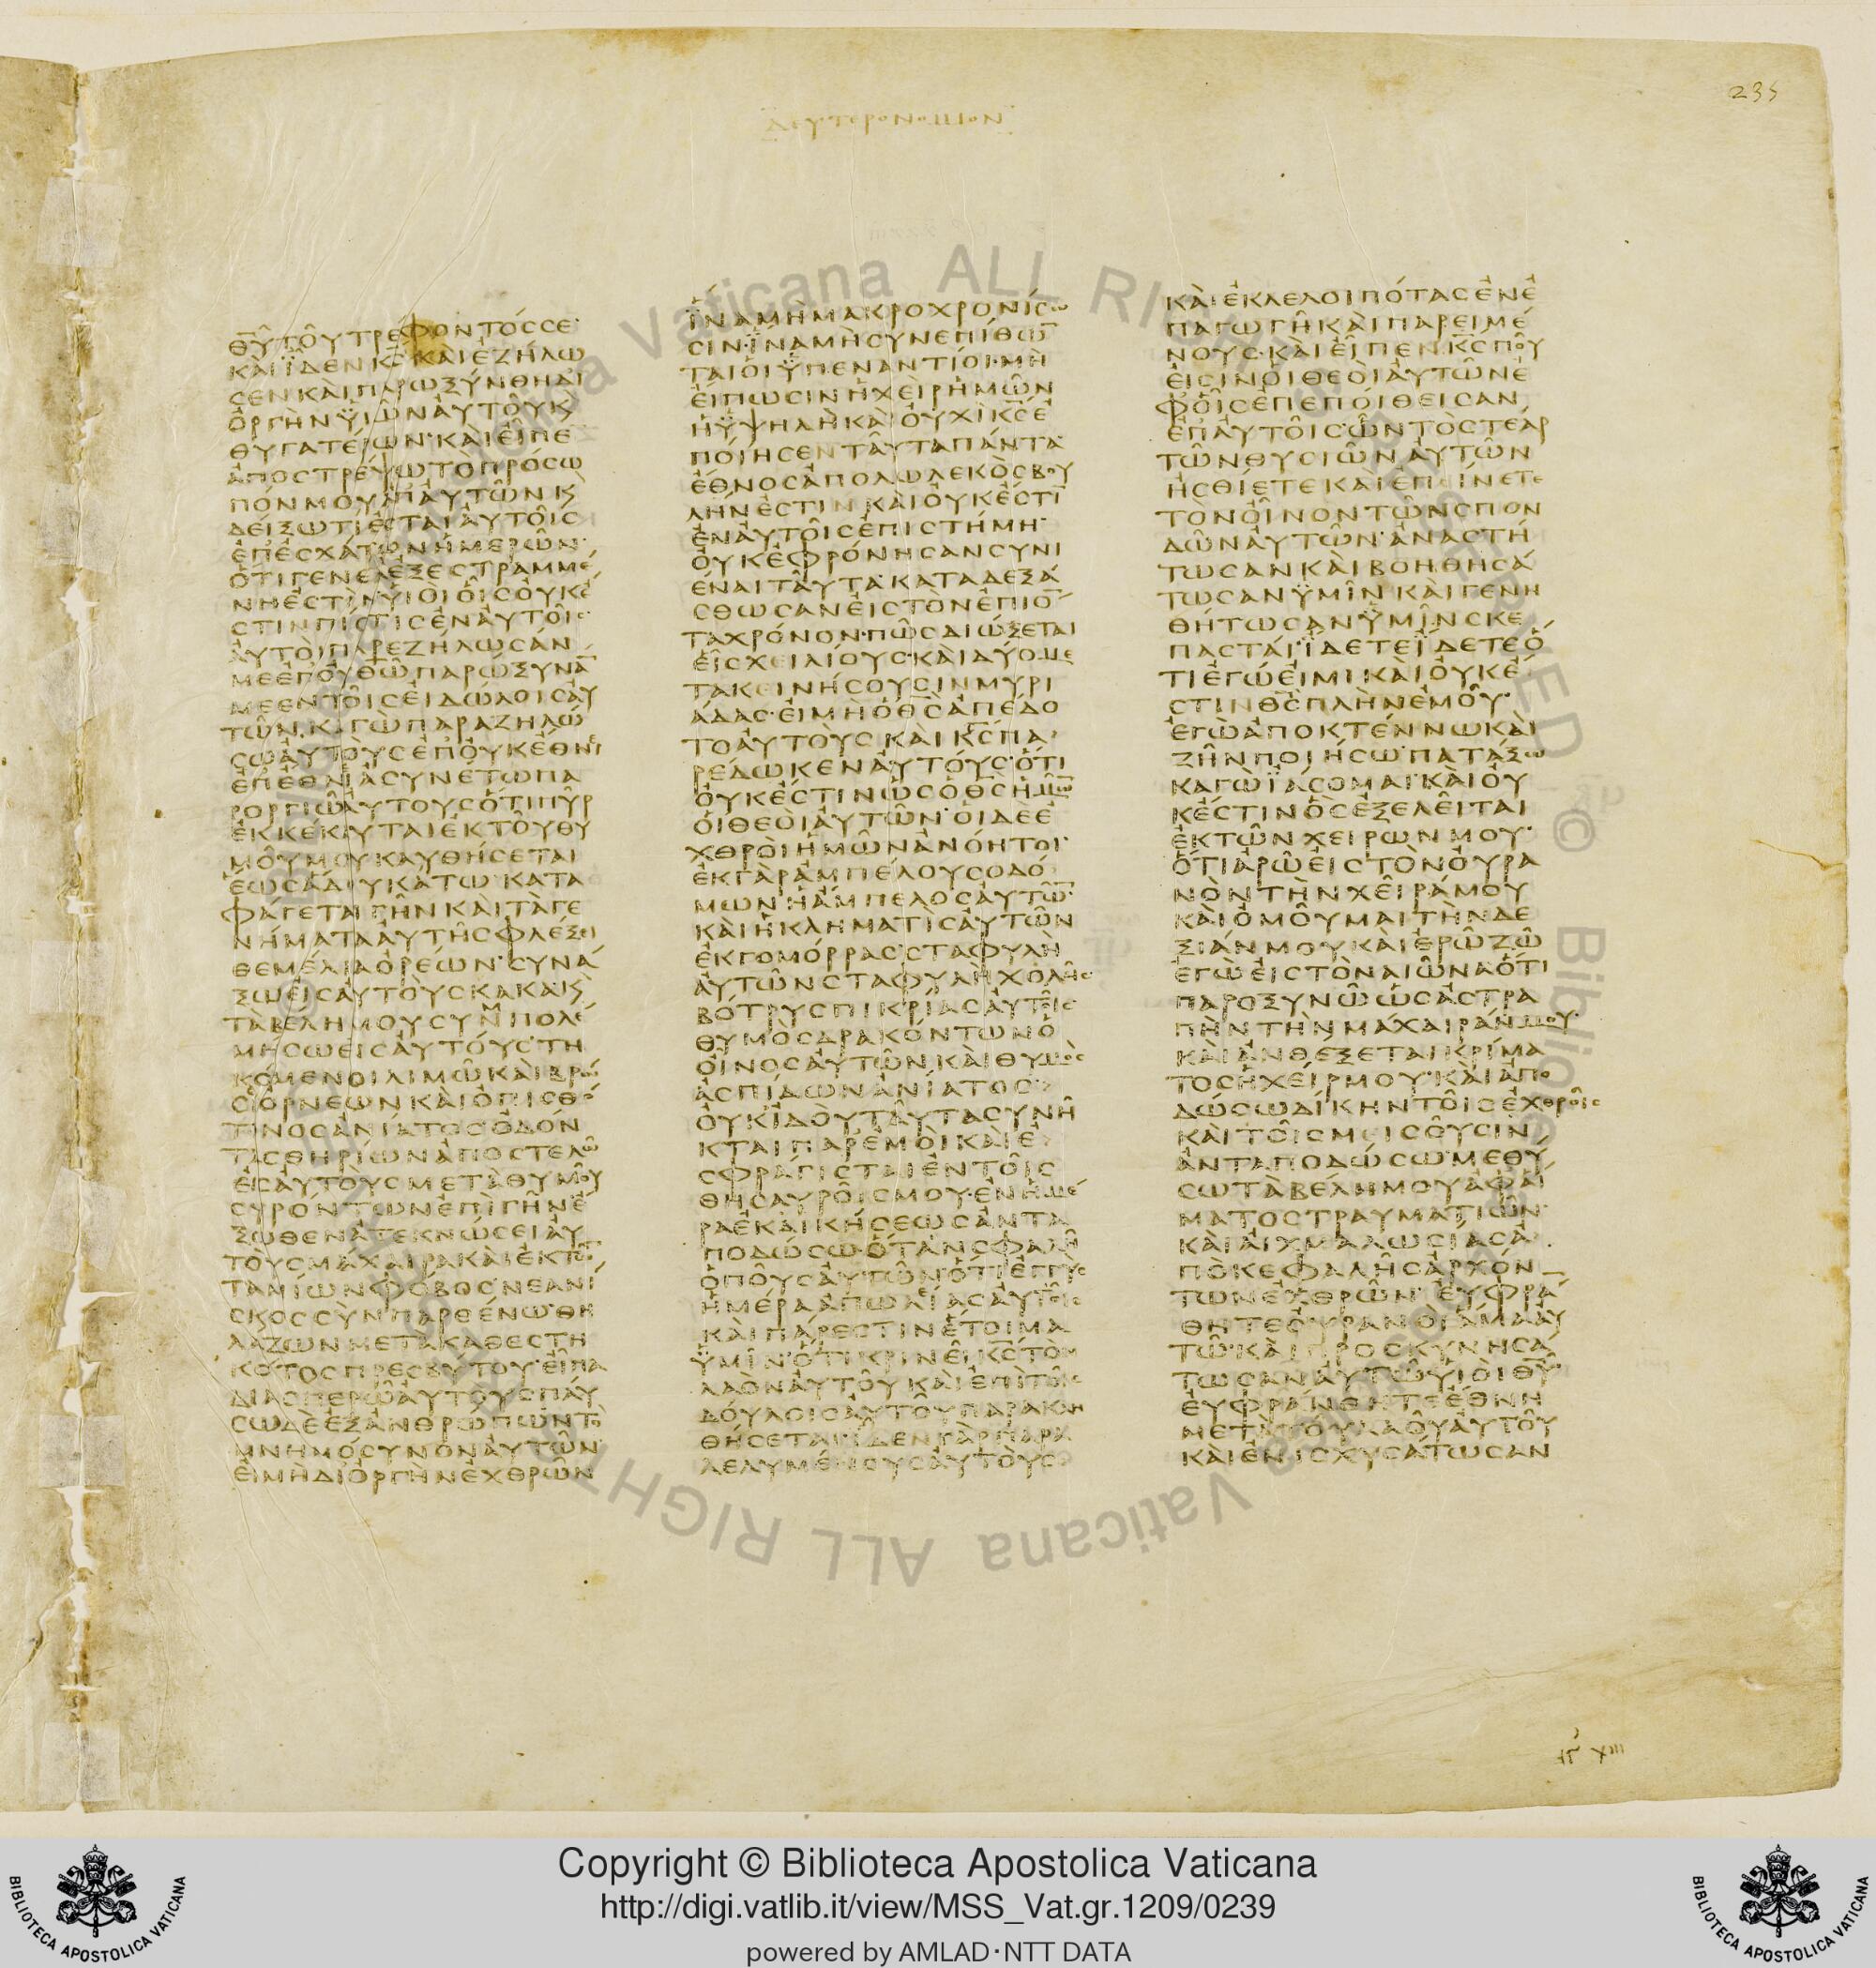 235
ΔΕΥΤΕΡΟΝΟΜΙΟΝ
ΘΥ ΤΟΥ ΤΡΕΦΟΝΤΟC CΕ
ΚΑΙ ΪΔΕΝ ΚC ΚΑΙ ΕΖΗΛΩ
CΕΝ ΚΑΙ ΠΑΡΩΞΥΝΘΗ ΔΙ
ΟΡΓΗΝ ΫΙΩΝ ΑΥΤΟΥ Κ
ΘΥΓΑΤΕΡΩΝ ΚΑΙ ΕΙΠΕ
ΑΠΟCΤΡΕΨΩ ΤΟ ΠΡΟCΩ
ΠΟΝ ΜΟΥ ΑΠ ΑΥΤΩΝ Κ
ΔΕΙΞΩ ΤΙ ΕCΤΑΙ ΑΥΤΟΙC
ΕΠ ΕCΧΑΤΩΝ ΗΜΕΡΩΝ
ΟΤΙ ΓΕΝΕΑ ΕΞΕCΤΡΑΜΜΕ
ΝΗ ΕCΤΙΝ ΫΙΟΙ ΟΙC ΟΥΚ Ε
CΤΙΝ ΠΙCΤΙC ΕΝ ΑΥΤΟΙC
ΑΥΤΟΙ ΠΑΡΕΖΗΛΩCΑΝ
ΜΕ ΕΠ ΟΥ ΘΩ ΠΑΡΩΞΥΝΑ
ΜΕ ΕΝ ΤΟΙC ΕΙΔΩΛΟΙC ΑΥ
ΤΩΝ ΚΑΓΩ ΠΑΡΑΖΗΛΩ
CΩ ΑΥΤΟΥC ΕΠ ΟΥΚ ΕΘΝΕΙ
ΕΠ ΕΘΝΕΙ ΑCΥΝΕΤΩ ΠΑ
ΡΟΡΓΙΩ ΑΥΤΟΥC ΟΤΙ ΠΥΡ
ΕΚΚΕΚΑΥΤΑΙ ΕΚ ΤΟΥ ΘΥ
ΜΟΥ ΜΟΥ ΚΑΥΘΗCΕΤΑΙ
ΕΩC ΑΔΟΥ ΚΑΤΩ ΚΑΤΑ
ΦΑΓΕΤΑΙ ΓΗΝ ΚΑΙ ΤΑ ΓΕ
ΝΗΜΑΤΑ ΑΥΤΗC ΦΛΕΞΕΙ
ΘΕΜΕΛΙΑ ΟΡΕΩΝ CΥΝΑ
ΞΩ ΕΙC ΑΥΤΟΥC ΚΑΚΑ Κ
ΤΑ ΒΕΛΗ ΜΟΥ CΥΜΠΟΛΕ
ΜΗCΩ ΕΙC ΑΥΤΟΥC ΤΗ
ΚΟΜΕΝΟΙ ΛΙΜΩ ΚΑΙ ΒΡΩ
CΕΙ ΟΡΝΕΩΝ ΚΑΙ ΟΠΙCΘΟ
ΤΙΝΟC ΑΝΙΑΤΟC ΟΔΟΝ
ΤΑC ΘΗΡΙΩΝ ΑΠΟCΤΕΛΩ
ΕΙC ΑΥΤΟΥC ΜΕΤΑ ΘΥΜΟΥ
CΥΡΟΝΤΩΝ ΕΠΙ ΓΗΝ Ε
ΞΩΘΕΝ ΑΤΕΚΝΩCΕΙ ΑΥ
ΤΟΥC ΜΑΧΑΙΡΑ ΚΑΙ ΕΚ ΤΩ
ΤΑΜΙΩΝ ΦΟΒΟC ΝΕΑΝΙ
CΚΟC CΥΝ ΠΑΡΘΕΝΩ ΘΗ
ΛΑΖΩΝ ΜΕΤΑ ΚΑΘΕCΤΗ
ΚΟΤΟC ΠΡΕCΒΥΤΟΥ ΕΙΠΑ
ΔΙΑCΠΕΡΩ ΑΥΤΟΥC ΠΑΥ
CΩ ΔΕ ΕΞ ΑΝΘΡΩΠΩΝ ΤΟ
ΜΝΗΜΟCΥΝΟΝ ΑΥΤΩΝ
ΕΙ ΜΗ ΔΙ ΟΡΓΗΝ ΕΧΘΡΩΝ
ΪΝΑ ΜΗ ΜΑΚΡΟΧΡΟΝΙCΩ
CΙΝ ΪΝΑ ΜΗ CΥΝΕΠΙΘΩ
ΤΑΙ ΟΙ ΫΠΕΝΑΝΤΙΟΙ ΜΗ
ΕΙΠΩCΙΝ Η ΧΕΙΡ ΗΜΩΝ
Η ΫΨΗΛΗ ΚΑΙ ΟΥΧΙ ΚC Ε
ΠΟΙΗCΕΝ ΤΑΥΤΑ ΠΑΝΤΑ
ΕΘΝΟC ΑΠΟΛΩΛΕΚΟC ΒΟΥ
ΛΗΝ ΕCΤΙΝ ΚΑΙ ΟΥΚ ΕCΤΙ
ΕΝ ΑΥΤΟΙC ΕΠΙCΤΗΜΗ
ΟΥΚ ΕΦΡΟΝΗCΑΝ CΥΝΙ
ΕΝΑΙ ΤΑΥΤΑ ΚΑΤΑΔΕΞΑ
CΘΩCΑΝ ΕΙC ΤΟΝ ΕΠΙΟ
ΤΑ ΧΡΟΝΟΝ ΠΩC ΔΙΩΞΕΤΑΙ
ΕΙC ΧΕΙΛΙΟΥC ΚΑΙ ΔΥΟ ΜΕ
ΤΑΚΕΙΝΗCΟΥCΙΝ ΜΥΡΙ
ΑΔΑC ΕΙ ΜΗ Ο ΘC ΑΠΕΔΟ
ΤΟ ΑΥΤΟΥC ΚΑΙ ΚC ΠΑ
ΡΕΔΩΚΕΝ ΑΥΤΟΥC ΟΤΙ
ΟΥΚ ΕCΤΙΝ ΩC Ο ΘC ΗΜΩ
ΟΙ ΘΕΟΙ ΑΥΤΩΝ ΟΙ ΔΕ Ε
ΧΘΡΟΙ ΗΜΩΝ ΑΝΟΗΤΟΙ
ΕΚ ΓΑΡ ΑΜΠΕΛΟΥ CΟΔΟ
ΜΩΝ Η ΑΜΠΕΛΟC ΑΥΤΩ
ΚΑΙ Η ΚΛΗΜΑΤΙC ΑΥΤΩΝ
ΕΚ ΓΟΜΟΡΡΑC CΤΑΦΥΛΗ
ΑΥΤΩΝ CΤΑΦΥΛΗ ΧΟΛΗC
ΒΟΤΡΥC ΠΙΚΡΙΑC ΑΥΤΟΙC
ΘΥΜΟC ΔΡΑΚΟΝΤΩΝ Ο
ΟΙΝΟC ΑΥΤΩΝ ΚΑΙ ΘΥΜΟC
ΑCΠΙΔΩΝ ΑΝΙΑΤΟC
ΟΥΚ ΙΔΟΥ ΤΑΥΤΑ CΥΝΗ
ΚΤΑΙ ΠΑΡ ΕΜΟΙ ΚΑΙ Ε
CΦΡΑΓΙCΤΑΙ ΕΝ ΤΟΙC
ΘΗCΑΥΡΟΙC ΜΟΥ ΕΝ ΗΜΕ
ΡΑ ΕΚΔΙΚΗCΕΩC ΑΝΤΑ
ΠΟΔΩCΩ ΟΤΑΝ CΦΑΛΗ
Ο ΠΟΥC ΑΥΤΩΝ ΟΤΙ ΕΓΓΥC
ΗΜΕΡΑ ΑΠΩΛΕΙΑC ΑΥΤΟΙC
ΚΑΙ ΠΑΡΕCΤΙΝ ΕΤΟΙΜΑ
ΫΜΙΝ ΟΤΙ ΚΡΙΝΕΙ ΚC ΤΟΝ
ΛΑΟΝ ΑΥΤΟΥ ΚΑΙ ΕΠΙ ΤΟΙC
ΔΟΥΛΟΙC ΑΥΤΟΥ ΠΑΡΑΚΛΗ
ΘΗCΕΤΑΙ ΪΔΕΝ ΓΑΡ ΠΑΡΑ
ΛΕΛΥΜΕΝΟΥC ΑΥΤΟΥC
ΚΑΙ ΕΚΛΕΛΟΙΠΟΤΑC ΕΝ Ε
ΠΑΓΩΓΗ ΚΑΙ ΠΑΡΕΙΜΕ
ΝΟΥC ΚΑΙ ΕΙΠΕΝ ΚC ΠΟΥ
ΕΙCΙΝ ΟΙ ΘΕΟΙ ΑΥΤΩΝ Ε
Φ ΟΙC ΕΠΕΠΟΙΘΕΙCΑΝ
ΕΠ ΑΥΤΟΙC ΩΝ ΤΟ CΤΕΑΡ
ΤΩΝ ΘΥCΙΩΝ ΑΥΤΩΝ
ΗCΘΙΕΤΕ ΚΑΙ ΕΠΙΝΕΤΕ
ΤΟΝ ΟΙΝΟΝ ΤΩΝ CΠΟΝ
ΔΩΝ ΑΥΤΩΝ ΑΝΑCΤΗ
ΤΩCΑΝ ΚΑΙ ΒΟΗΘΗCΑ
ΤΩCΑΝ ΫΜΙΝ ΚΑΙ ΓΕΝΗ
ΘΗΤΩCΑΝ ΫΜΙΝ CΚΕ
ΠΑCΤΑΙ ΪΔΕΤΕ ΪΔΕΤΕ Ο
ΤΙ ΕΓΩ ΕΙΜΙ ΚΑΙ ΟΥΚ Ε
CΤΙΝ ΘC ΠΛΗΝ ΕΜΟΥ
ΕΓΩ ΑΠΟΚΤΕΝΝΩ ΚΑΙ
ΖΗΝ ΠΟΙΗCΩ ΠΑΤΑΞΩ
ΚΑΓΩ ΪΑCΟΜΑΙ ΚΑΙ ΟΥ
Κ ΕCΤΙΝ ΟC ΕΞΕΛΕΙΤΑΙ
ΕΚ ΤΩΝ ΧΕΙΡΩΝ ΜΟΥ
ΟΤΙ ΑΡΩ ΕΙC ΤΟΝ ΟΥΡΑ
ΝΟΝ ΤΗΝ ΧΕΙΡΑ ΜΟΥ
ΚΑΙ ΟΜΟΥΜΑΙ ΤΗΝ ΔΕ
ΞΙΑΝ ΜΟΥ ΚΑΙ ΕΡΩ ΖΩ
ΕΓΩ ΕΙC ΤΟΝ ΑΙΩΝΑ ΟΤΙ
ΠΑΡΟΞΥΝΩ ΩC ΑCΤΡΑ
ΠΗΝ ΤΗΝ ΜΑΧΑΙΡΑΝ ΜΟΥ
ΚΑΙ ΑΝΘΕΞΕΤΑΙ ΚΡΙΜΑ
ΤΟC Η ΧΕΙΡ ΜΟΥ ΚΑΙ ΑΠΟ
ΔΩCΩ ΔΙΚΗΝ ΤΟΙC ΕΧΘΡΟΙC
ΚΑΙ ΤΟΙC ΜΕΙCΟΥCΙΝ
ΑΝΤΑΠΟΔΩCΩ ΜΕΘΥ
CΩ ΤΑ ΒΕΛΗ ΜΟΥ ΑΦ ΑΙ
ΜΑΤΟC ΤΡΑΥΜΑΤΙΩΝ
ΚΑΙ ΑΙΧΜΑΛΩCΙΑC Α
ΠΟ ΚΕΦΑΛΗC ΑΡΧΟΝ
ΤΩΝ ΕΧΘΡΩΝ ΕΥΦΡΑ
ΘΗΤΕ ΟΥΡΑΝΟΙ ΑΜΑ ΑΥ
ΤΩ ΚΑΙ ΠΡΟCΚΥΝΗCΑ
ΤΩCΑΝ ΑΥΤΩ ΥΙΟΙ ΘΥ
ΕΥΦΡΑΝΘΗΤΕ ΕΘΝΗ
ΜΕΤΑ ΤΟΥ ΛΑΟΥ ΑΥΤΟΥ
ΚΑΙ ΕΝΙCΧΥCΑΤΩCΑΝ
Copyright © Biblioteca Apostolica Vaticana
http://digi.vatlib.it/view/MSS_Vat.gr.1209/0239
powered by AMLAD·NTT DATA
BIBLIOTECA APOSTOLICA VATICANA
BIBLIOTECA APOSTOLICA VATICANA